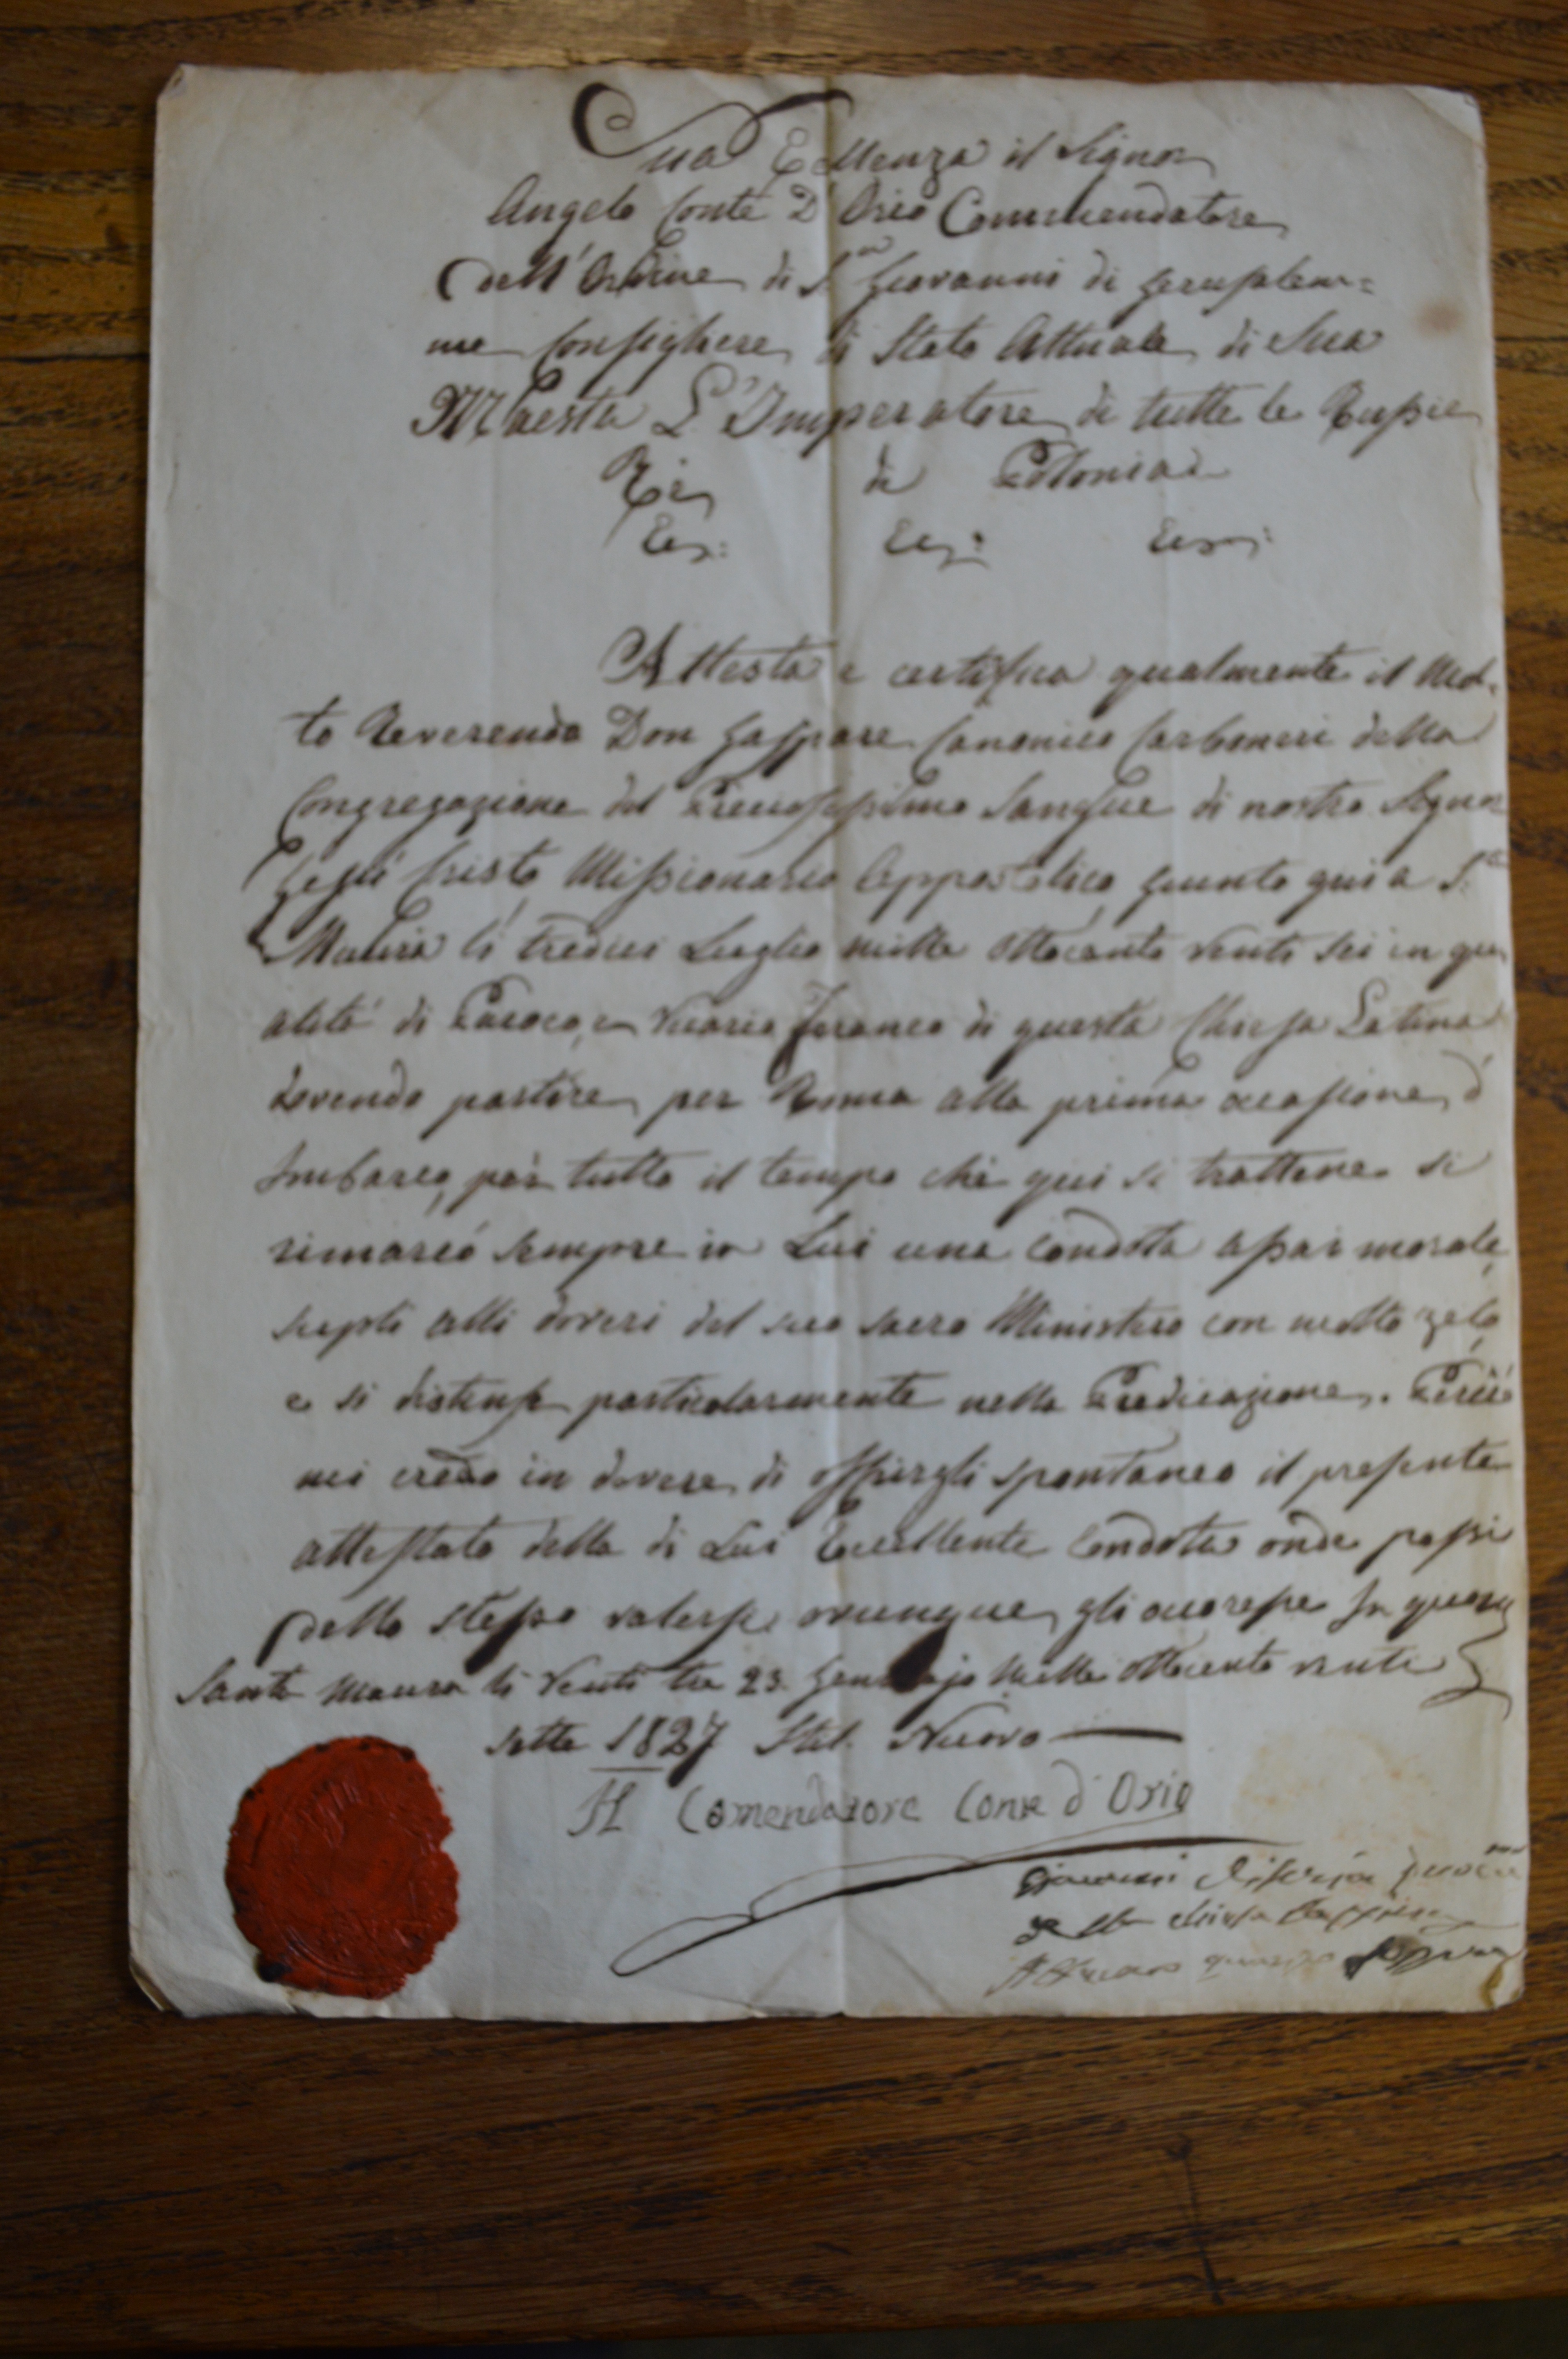 Sua Ecellenza il Signor
Angelo Conte D'Orio Commendatore
dell'Ordine di S.n Giovanni di Gerusalem=
me Consigliere di Stato Attuale di Sua
Maestà L'Imperatore di tutte le Russie
Rè di Polonia
Ecc: Ecc: Ecc:
Attesta e certifica qualmente il Mol-
to Reverendo Don Gaspare Canonico Carboneri della
Congregazione del Preciosissimo Sangue di nostro Signor
Gesù Cristo Missionario Appostolico giunto qui a S.ta
Maura li tredici Luglio mille ottocento venti sei in qu
alità di Paroco, e Vicario Foraneo di questa Chiesa Latina
dovendo partire per Roma alla prima occasione d'
Imbarco, per tutto il tempo che qui si trattene si
rimarcò sempre in Lui una condotta assai morale,
suplì alli doveri del suo sacro Ministero con molto zelo,
e si distinse particolarmente nella Predicazione. Perciò
mi credo in dovere di offrirgli spontaneo il presente
attestato della di Lui Eccellente Condotta onde possi
dello stesso valersi ovunque gli ocoresse In quorum
Santa Maura li Venti tre 23 Gennajo Mille ottocento venti
sette 1827 Stil. Nuovo
Il Comendatore Conte d'Orio
Giovanni
della chiesa
Affermo quanto sopra